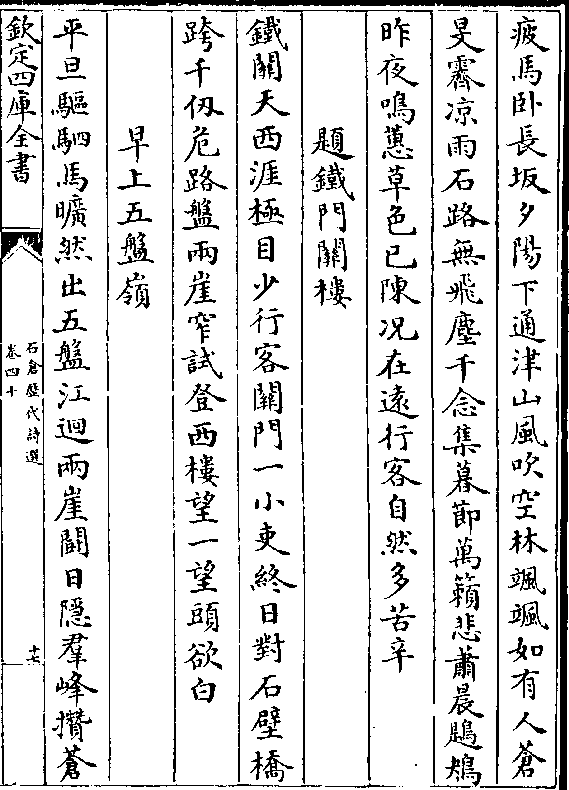 疲馬卧長坂夕陽下通津山風吹空林颯颯如有人蒼
旻霽凉雨石路無飛塵千念集暮節萬籟悲蕭晨鶗鴂
昨夜鳴蕙草色已陳况在遠行客自然多苦辛
題鐵門關樓
鐵關天西涯極目少行客關門一小吏終日對石壁橋
跨千仭危路盤兩崖窄試登西樓望一望頭欲白
早上五盤嶺
平旦驅駟馬曠然出五盤江迴兩崖鬭日隱羣峰攢蒼
欽定四庫全書
石倉歷代詩選
卷四十
十七